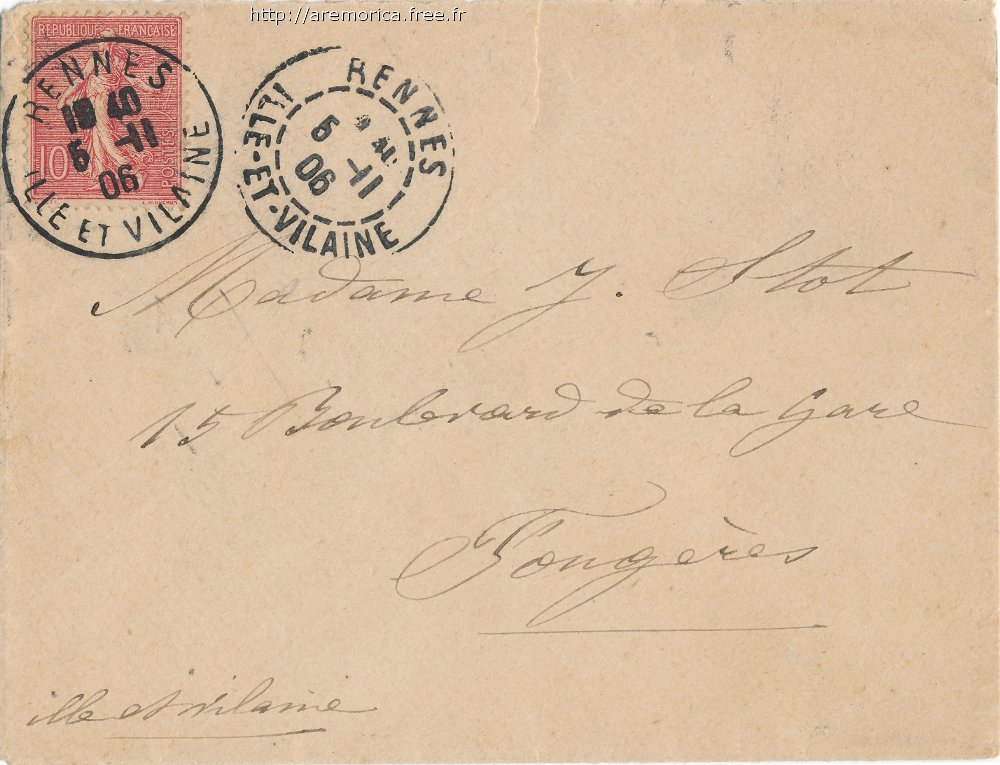 http://aremorica.free.fr
REPUBLIQUE FRANÇAISE
10
POSTES
RENNES
40
5 -11
06
ILLE ET VILAINE
RENNES
5 -11
06
ILLE-ET-VILAINE
Madame J. Stot
15 Boulevard de la Gare
Fougères
ille et vilaine